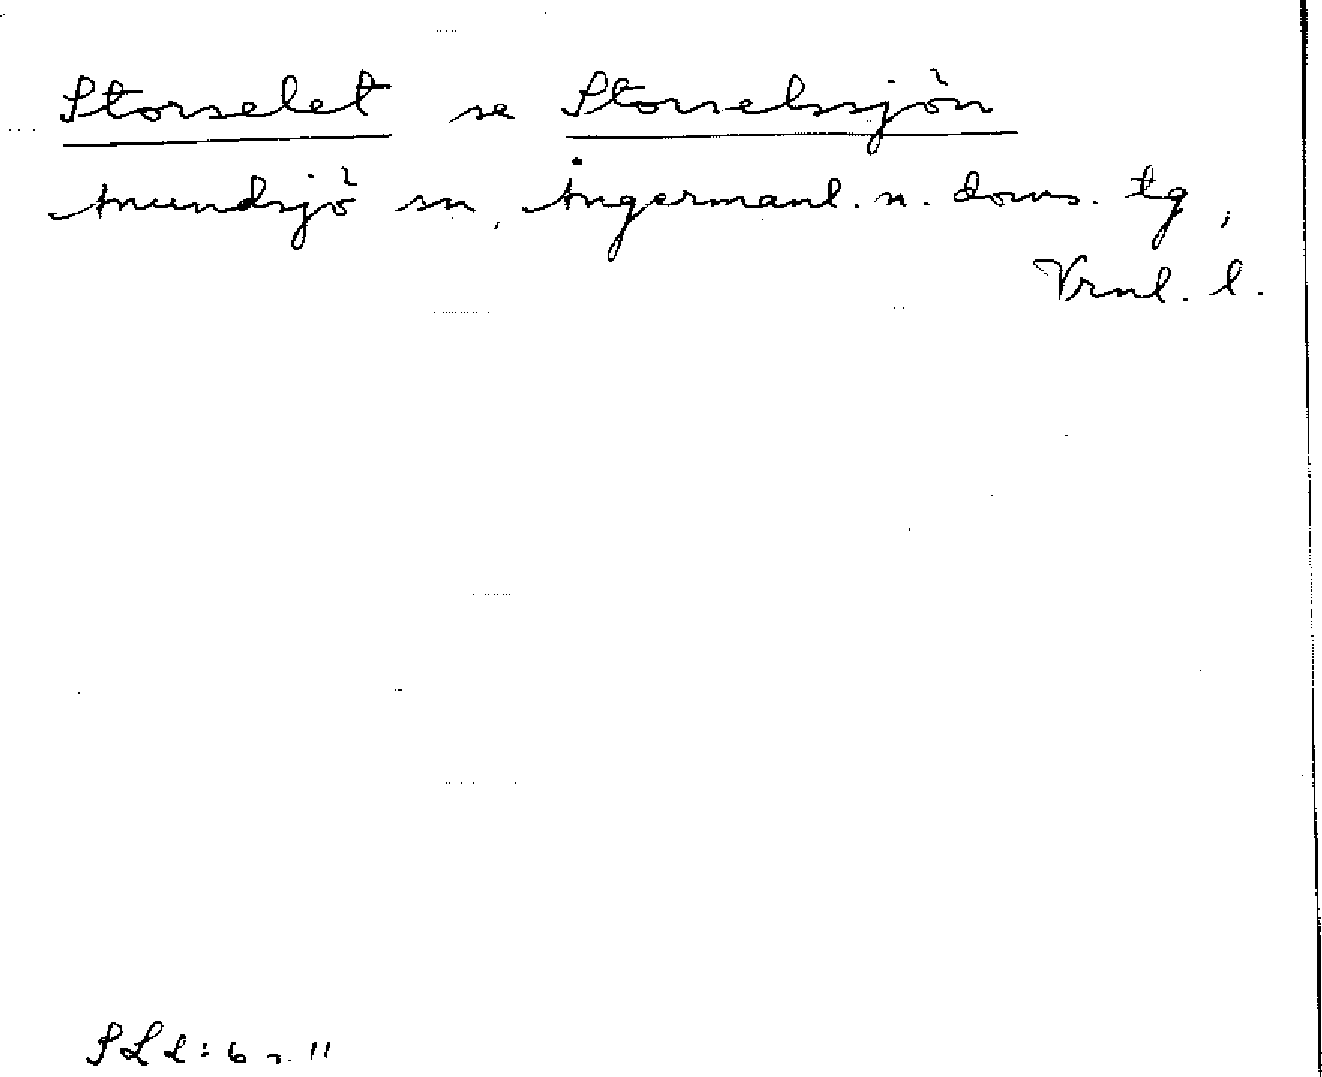 Storselet se Storselssjön
Anundsjö sn, Ångermanl. n. doms. tg,
Vrnl. l.
SLL: 6 s. 11